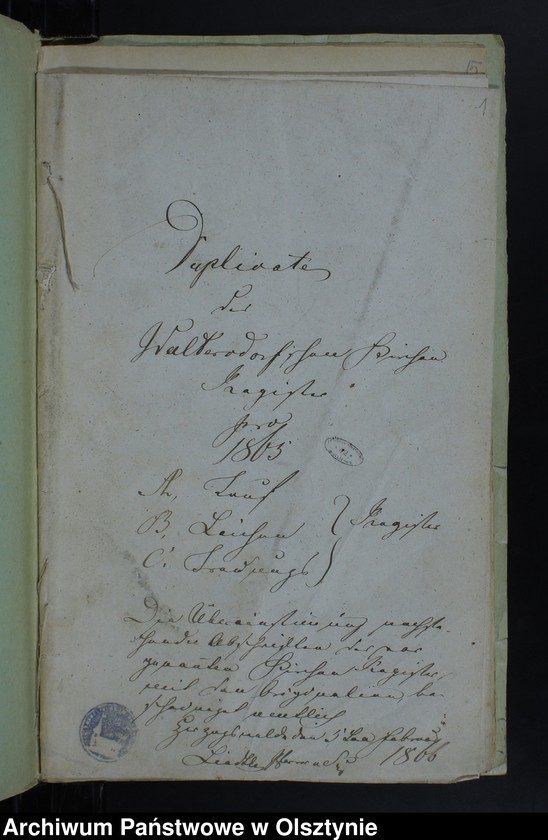 15
1
Duplicate
der
Waltersdorfschen Kirchen
Register
pro
1865
A, Tauf
B, Leichen } Register
C, Trauungs
Die Übereinstimmung nachste-
hender Abschriften der vor
genannten Kirchen Register
mit den Originalien be-
scheinigt amtlich
Herzogswalde den 5ten Februar
1866
Archiwum Państwowe w Olsztynie